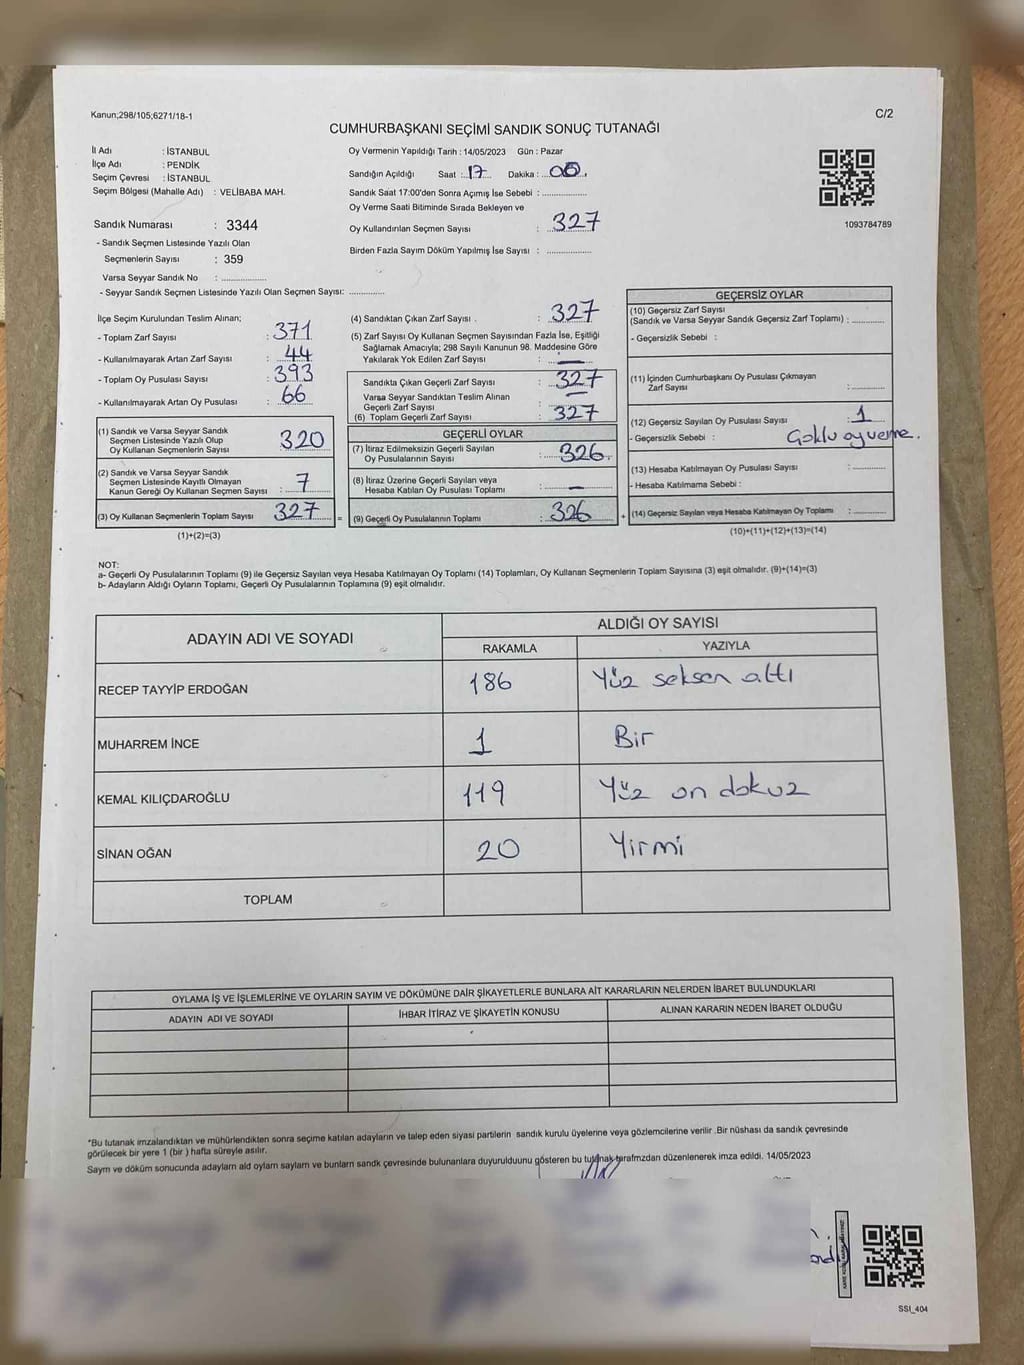 Kanun;298/105;6271/18-1
C/2
CUMHURBAŞKANI SEÇİMİ SANDIK SONUÇ TUTANAĞI
İl Adı : İSTANBUL
İlçe Adı : PENDİK
Seçim Çevresi : İSTANBUL
Seçim Bölgesi (Mahalle Adı) : VELİBABA MAH.
Oy Vermenin Yapıldığı Tarih : 14/05/2023 Gün : Pazar
Sandığın Açıldığı Saat : 17 Dakika : 00
Sandık Saat 17:00'den Sonra Açımış İse Sebebi :
Oy Verme Saati Bitiminde Sırada Bekleyen ve
Oy Kullandırılan Seçmen Sayısı : 327
Birden Fazla Sayım Döküm Yapılmış İse Sayısı :
1093784789
Sandık Numarası : 3344
- Sandık Seçmen Listesinde Yazılı Olan
Seçmenlerin Sayısı : 359
Varsa Seyyar Sandık No :
- Seyyar Sandık Seçmen Listesinde Yazılı Olan Seçmen Sayısı:
İlçe Seçim Kurulundan Teslim Alınan;
- Toplam Zarf Sayısı : 371
- Kullanılmayarak Artan Zarf Sayısı : 44
- Toplam Oy Pusulası Sayısı : 393
- Kullanılmayarak Artan Oy Pusulası : 66
(1) Sandık ve Varsa Seyyar Sandık
Seçmen Listesinde Yazılı Olup
Oy Kullanan Seçmenlerin Sayısı : 320
(2) Sandık ve Varsa Seyyar Sandık
Seçmen Listesinde Kayıtlı Olmayan
Kanun Gereği Oy Kullanan Seçmen Sayısı : 7
(3) Oy Kullanan Seçmenlerin Toplam Sayısı 327 =
(1)+(2)=(3)
(4) Sandıktan Çıkan Zarf Sayısı : 327
(5) Zarf Sayısı Oy Kullanan Seçmen Sayısından Fazla İse, Eşitliği
Sağlamak Amacıyla; 298 Sayılı Kanunun 98. Maddesine Göre
Yakılarak Yok Edilen Zarf Sayısı : —
Sandıkta Çıkan Geçerli Zarf Sayısı : 327
Varsa Seyyar Sandıktan Teslim Alınan
Geçerli Zarf Sayısı : —
(6) Toplam Geçerli Zarf Sayısı : 327
GEÇERLİ OYLAR
(7) İtiraz Edilmeksizin Geçerli Sayılan
Oy Pusulalarının Sayısı : 326
(8) İtiraz Üzerine Geçerli Sayılan veya
Hesaba Katılan Oy Pusulası Toplamı : —
(9) Geçerli Oy Pusulalarının Toplamı : 326 +
GEÇERSİZ OYLAR
(10) Geçersiz Zarf Sayısı
(Sandık ve Varsa Seyyar Sandık Geçersiz Zarf Toplamı) :
- Geçersizlik Sebebi :
(11) İçinden Cumhurbaşkanı Oy Pusulası Çıkmayan
Zarf Sayısı :
(12) Geçersiz Sayılan Oy Pusulası Sayısı : 1
- Geçersizlik Sebebi : Çoklu oy verme.
(13) Hesaba Katılmayan Oy Pusulası Sayısı :
- Hesaba Katılmama Sebebi :
(14) Geçersiz Sayılan veya Hesaba Katılmayan Oy Toplamı :
(10)+(11)+(12)+(13)=(14)
NOT:
a- Geçerli Oy Pusulalarının Toplamı (9) ile Geçersiz Sayılan veya Hesaba Katılmayan Oy Toplamı (14) Toplamları, Oy Kullanan Seçmenlerin Toplam Sayısına (3) eşit olmalıdır. (9)+(14)=(3)
b- Adayların Aldığı Oyların Toplamı, Geçerli Oy Pusulalarının Toplamına (9) eşit olmalıdır.
ADAYIN ADI VE SOYADI ALDIĞI OY SAYISI
RAKAMLA YAZIYLA
RECEP TAYYİP ERDOĞAN 186 Yüz seksen altı
MUHARREM İNCE 1 Bir
KEMAL KILIÇDAROĞLU 119 Yüz on dokuz
SİNAN OĞAN 20 Yirmi
TOPLAM
OYLAMA İŞ VE İŞLEMLERİNE VE OYLARIN SAYIM VE DÖKÜMÜNE DAİR ŞİKAYETLERLE BUNLARA AİT KARARLARIN NELERDEN İBARET BULUNDUKLARI
ADAYIN ADI VE SOYADI İHBAR İTİRAZ VE ŞİKAYETİN KONUSU ALINAN KARARIN NEDEN İBARET OLDUĞU
*Bu tutanak imzalandıktan ve mühürlendikten sonra seçime katılan adayların ve talep eden siyasi partilerin sandık kurulu üyelerine veya gözlemcilerine verilir .Bir nüshası da sandık çevresinde
görülecek bir yere 1 (bir ) hafta süreyle asılır.
Saym ve döküm sonucunda adaylarn ald oylarn saylarn ve bunlarn sandk çevresinde bulunanlara duyurulduunu gösteren bu tutanak tarafmzdan düzenlenerek imza edildi. 14/05/2023
SSI_404